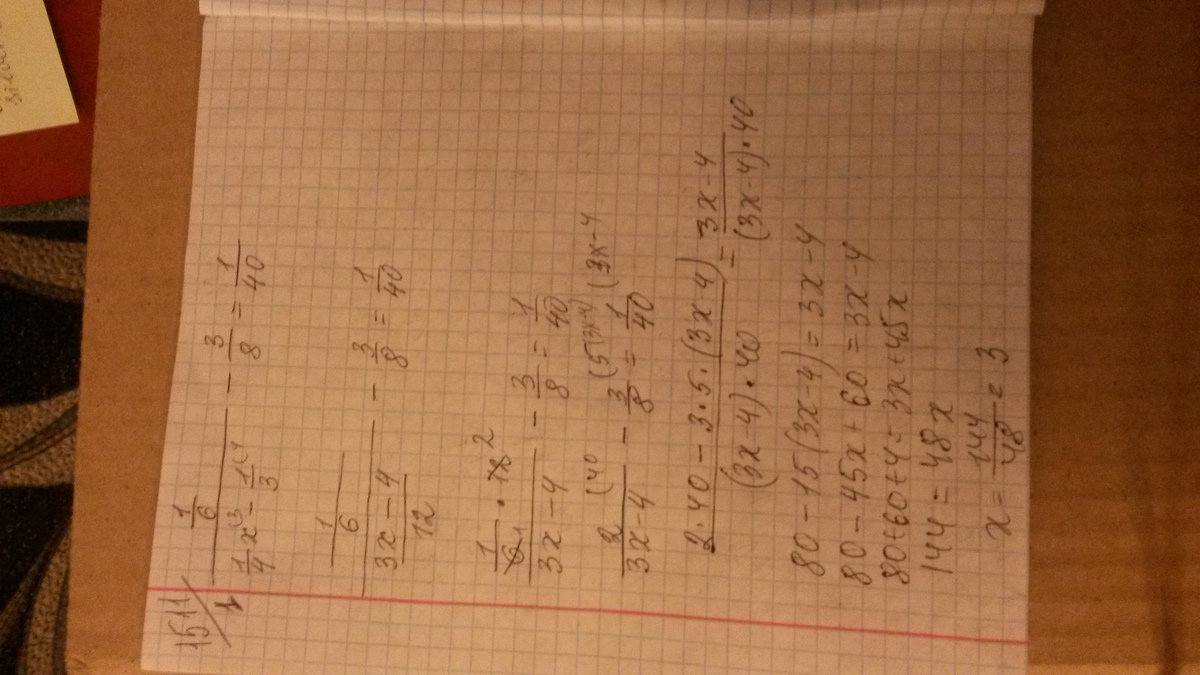 1511/1
(1/6)/(1/4 x⁽³ - 1/3⁽⁴) - 3/8 = 1/40
(1/6)/((3x-4)/12) - 3/8 = 1/40
(1/6₁ · 12 2)/(3x-4) - 3/8 = 1/40
2/(3x-4) (40 - 3/8 (5(3x-4) = 1/40 (3x-4
(2·40-3·5·(3x-4))/((3x-4)·40) = (3x-4)/((3x-4)·40)
80-15(3x-4)=3x-4
80-45x+60=3x-4
80+60+4=3x+45x
144=48x
x=144/48=3